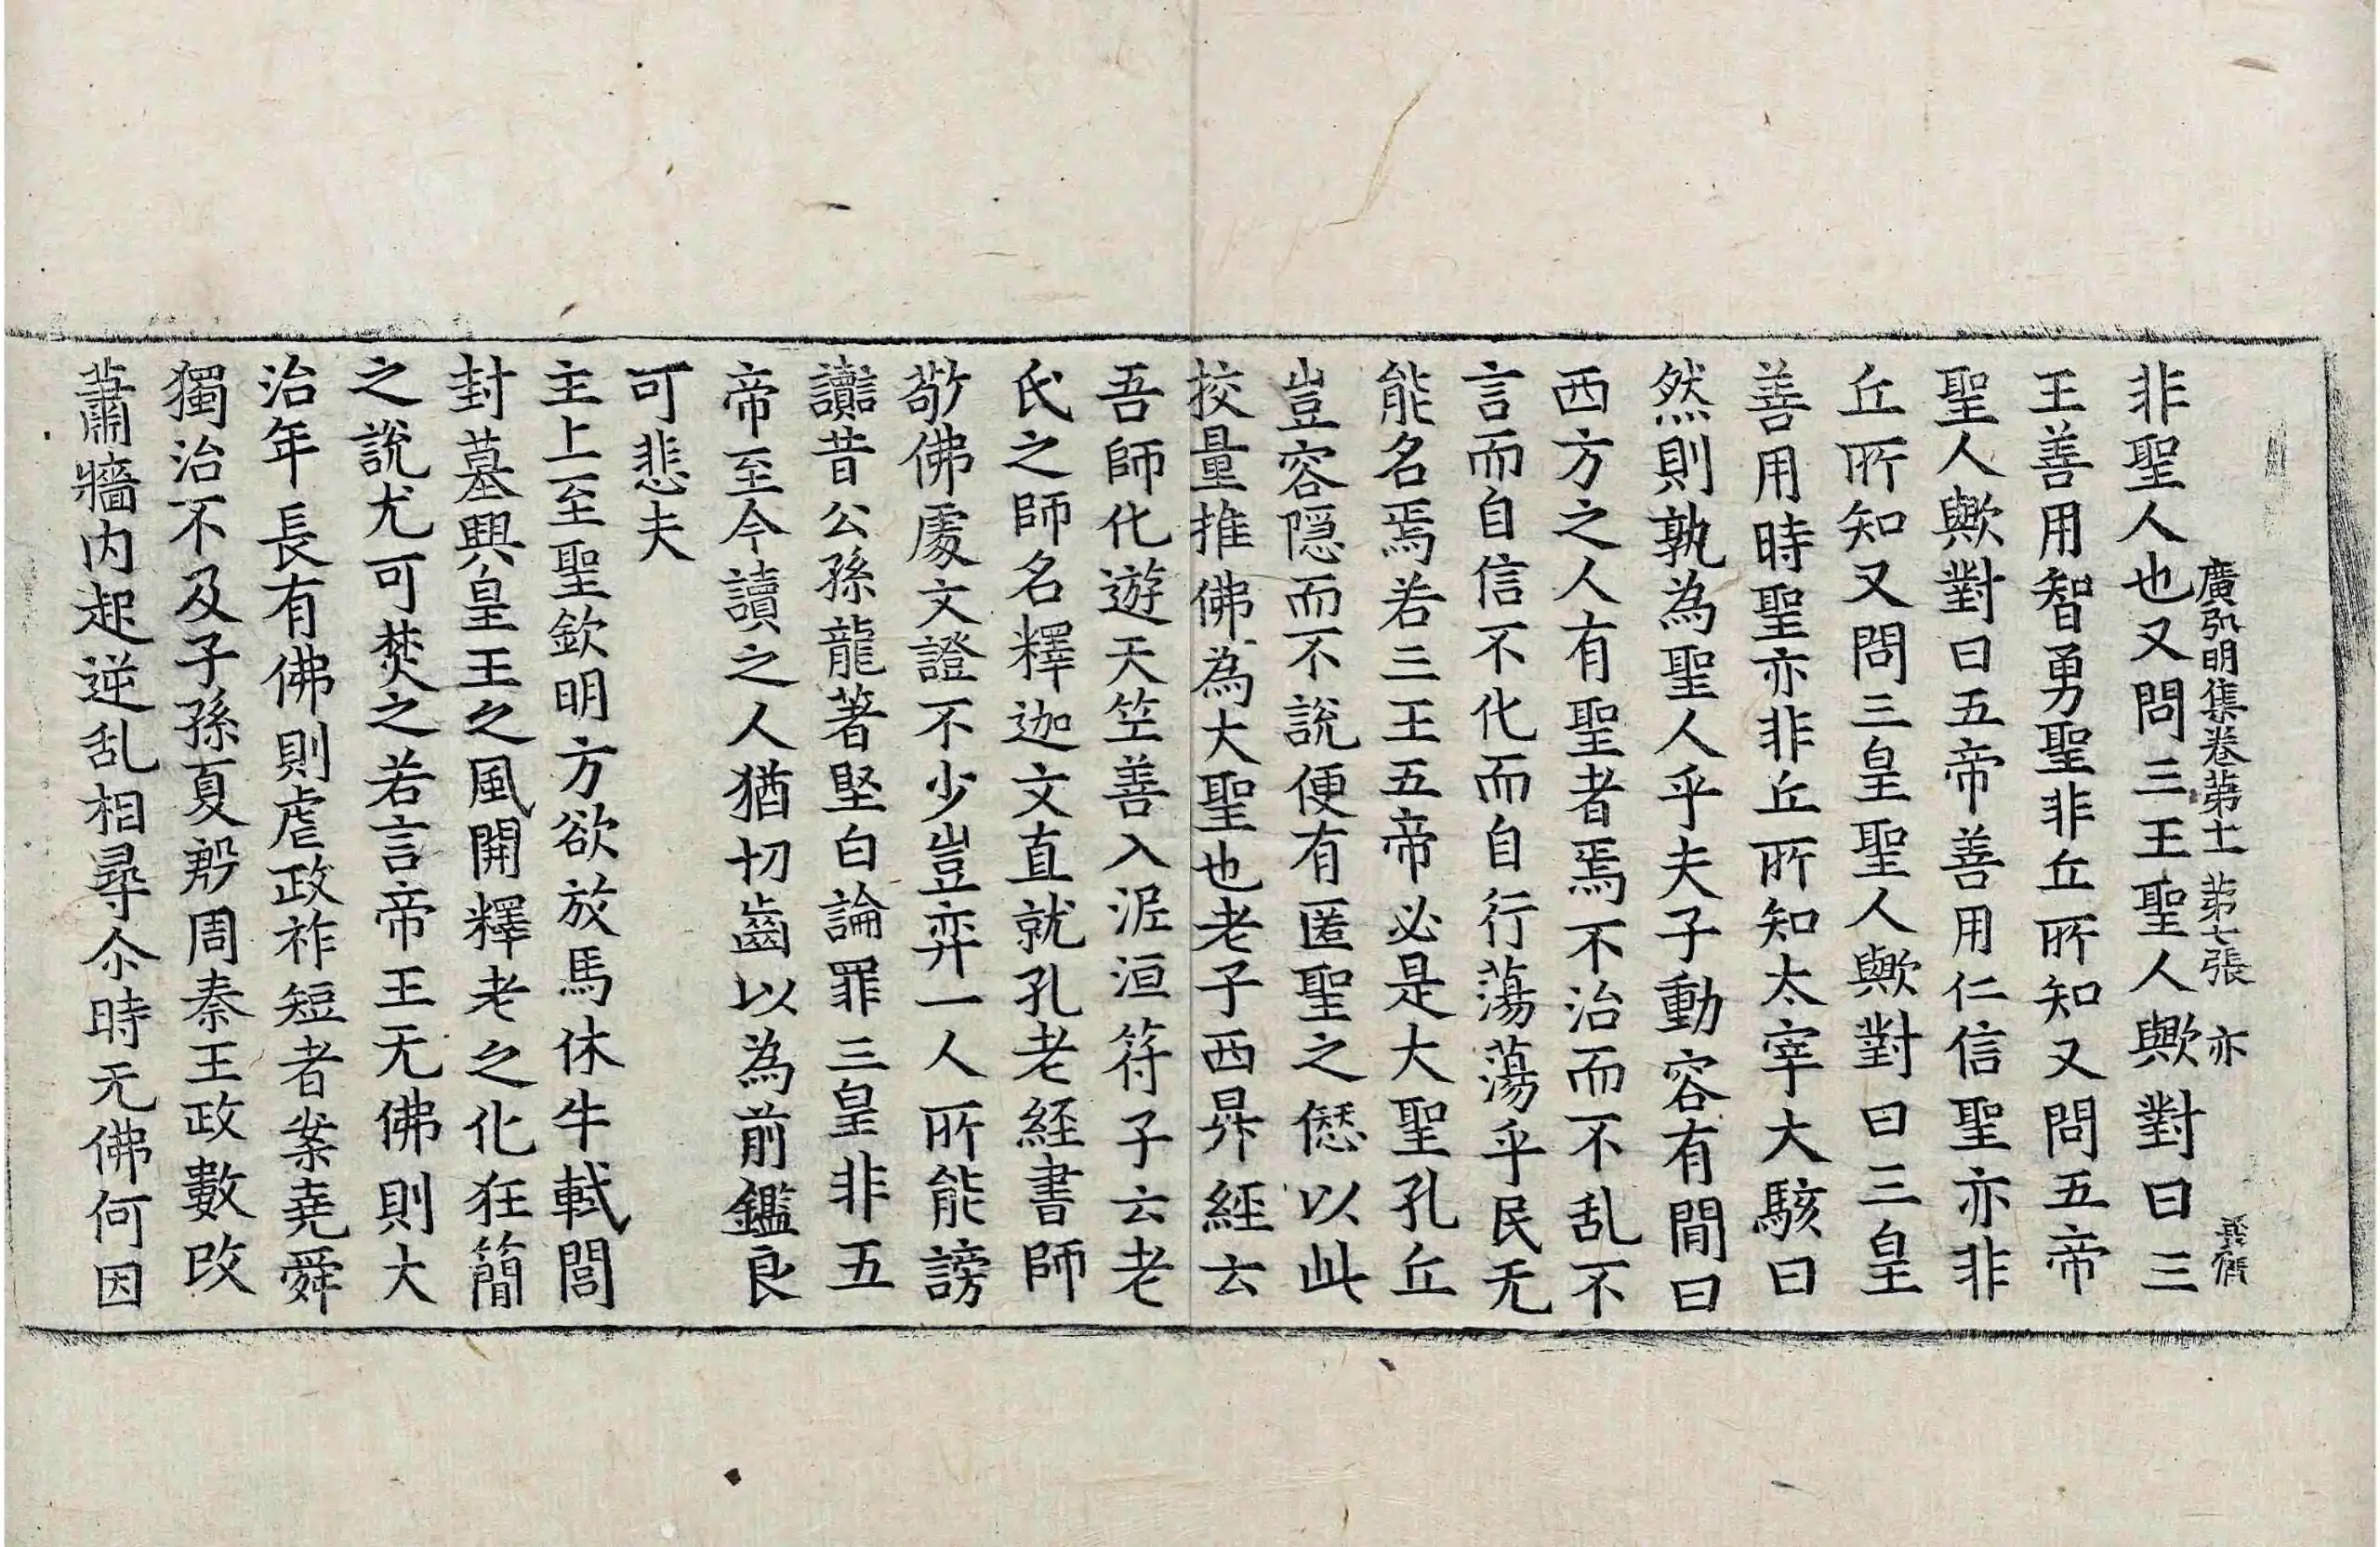 廣弘明集卷第十一 第七張 亦
非聖人也又問三王聖人歟對曰三
王善用智勇聖非丘所知又問五帝
聖人歟對曰五帝善用仁信聖亦非
丘所知又問三皇聖人歟對曰三皇
善用時聖亦非丘所知太宰大駭曰
然則孰為聖人乎夫子動容有閒曰
西方之人有聖者焉不治而不乱不
言而自信不化而自行蕩蕩乎民无
能名焉若三王五帝必是大聖孔丘
豈容隱而不說便有匿聖之愆以此
挍量推佛為大聖也老子西昇經云
吾師化遊天竺善入泥洹符子云老
氏之師名釋迦文直就孔老經書師
敬佛處文證不少豈弈一人所能謗
讟昔公孫龍著堅白論罪三皇非五
帝至今讀之人猶切齒以為前鑑良
可悲夫
主上至聖欽明方欲放馬休牛軾閭
封墓興皇王之風開釋老之化狂簡
之說尤可焚之若言帝王无佛則大
治年長有佛則虐政祚短者案堯舜
獨治不及子孫夏殷周秦王政數改
蕭牆內起逆乱相尋尒時无佛何因